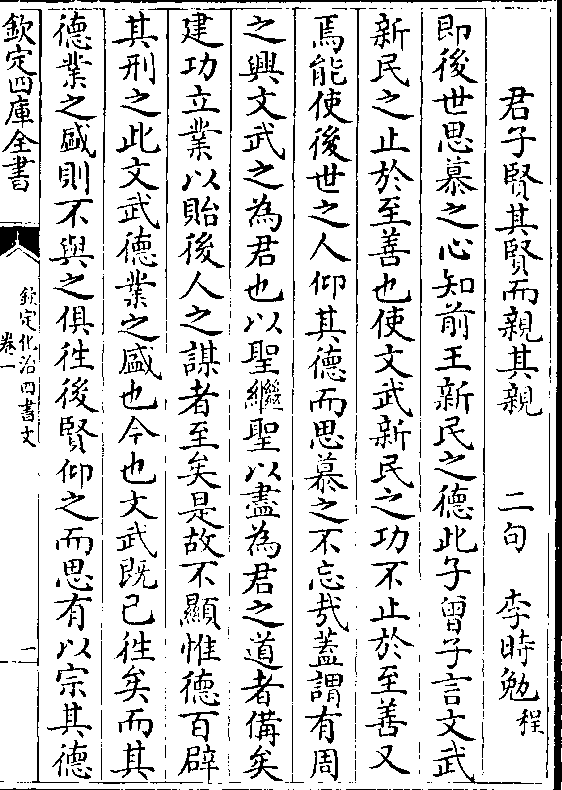 君子賢其賢而親其親 二句 李時勉程
即後世思慕之心知前王新民之德此子曾子言文武
新民之止於至善也使文武新民之功不止於至善又
焉能使後世之人仰其德而思慕之不忘㢤蓋謂有周
之興文武之為君也以聖繼聖以盡為君之道者備矣
建功立業以貽後人之謀者至矣是故不顯惟德百辟
其刑之此文武德業之盛也今也文武既已徃矣而其
德業之盛則不與之俱徃後賢仰之而思有以宗其德
欽定四庫全書
欽定化治四書文
卷一
一